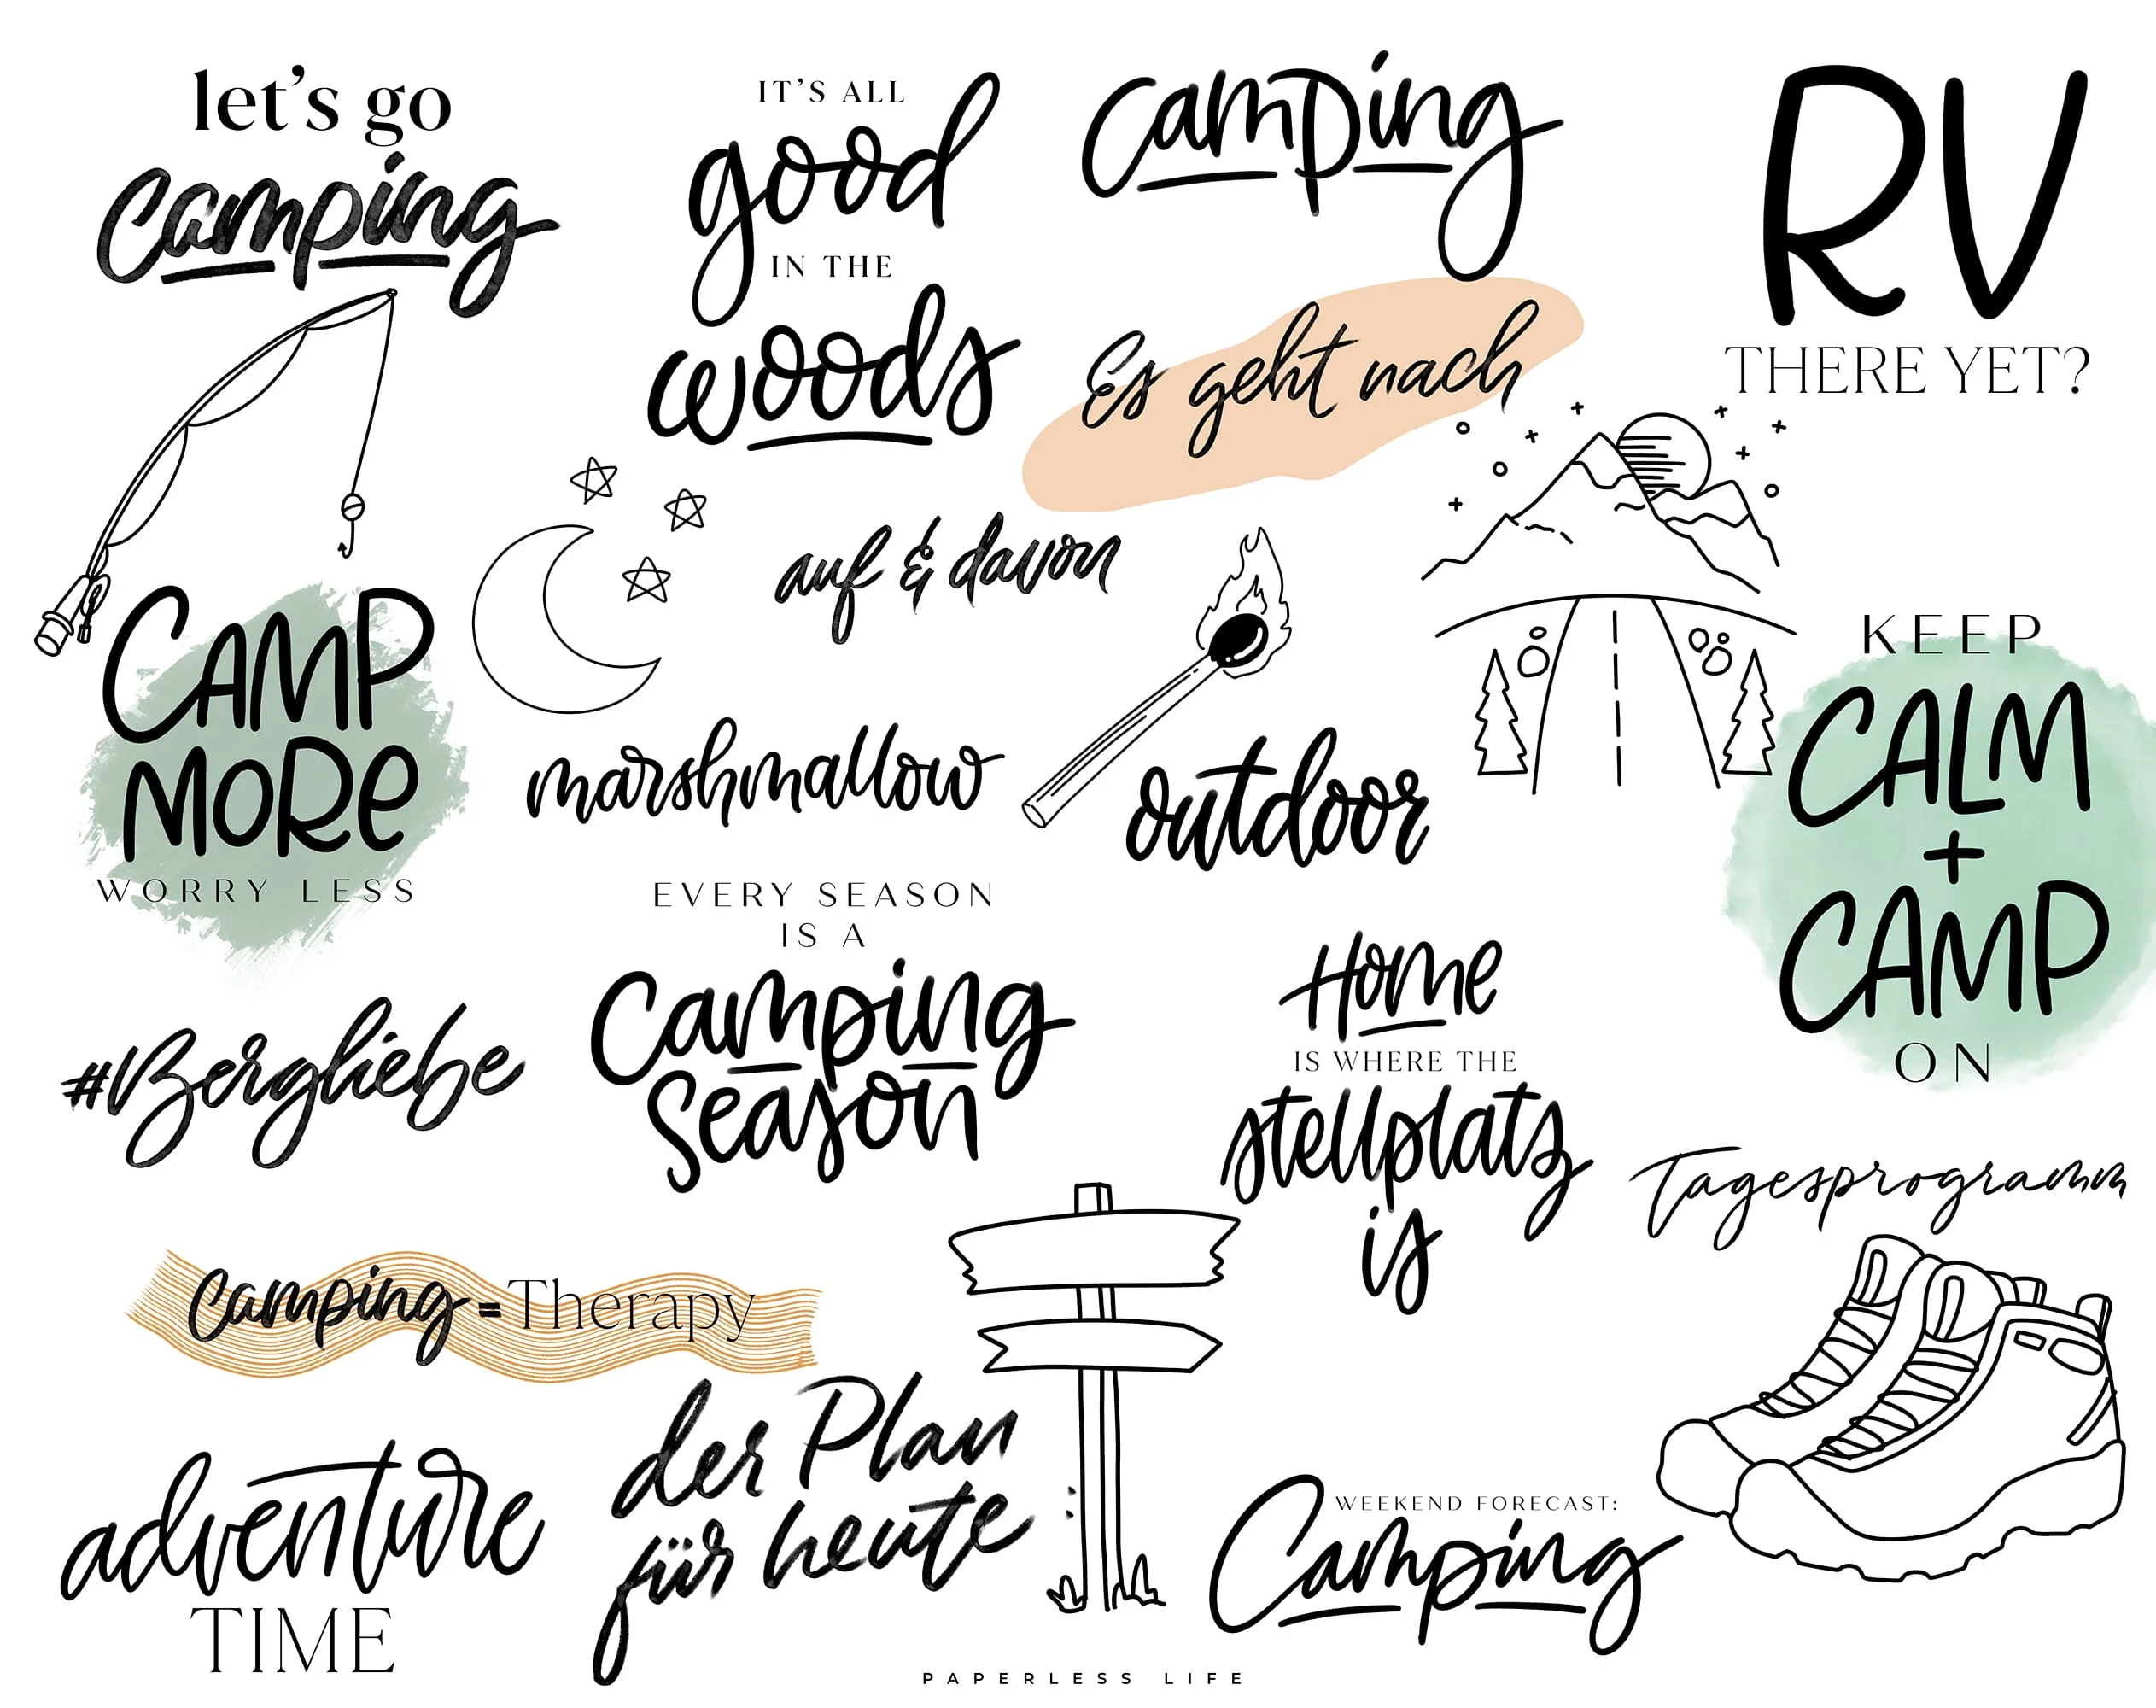 let's go
camping
IT'S ALL
good
IN THE
woods
camping
RV
THERE YET?
Es geht nach
auf & davon
CAMP
MORE
WORRY LESS
marshmallow
outdoor
KEEP
CALM
+
CAMP
ON
EVERY SEASON
IS A
Camping
Season
Home
IS WHERE THE
stellplatz
is
#Bergliebe
Tagesprogramm
camping = Therapy
der Plan
für heute
:
adventure
TIME
WEEKEND FORECAST:
Camping
PAPERLESS LIFE